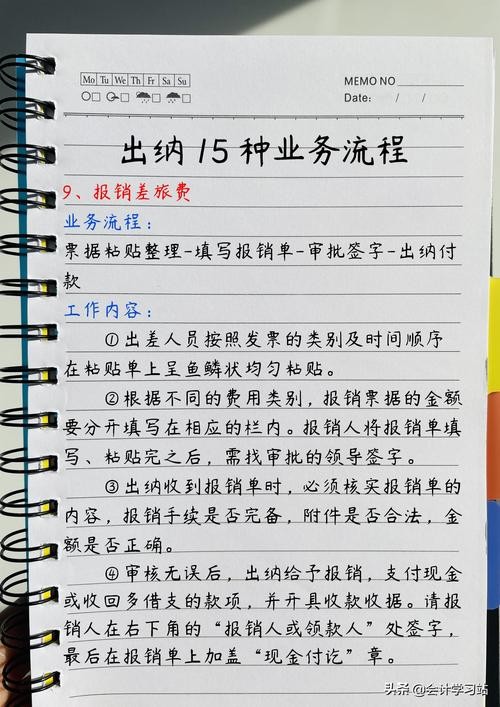 Mo Tu We Th Fr Sa Su
MEMO NO
Date: / /
出纳15种业务流程
9、报销差旅费
业务流程：
票据粘贴整理-填写报销单-审批签字-出纳付
款
工作内容：
①出差人员按照发票的类别及时间顺序
在粘贴单上呈鱼鳞状均匀粘贴。
②根据不同的费用类别，报销票据的金额
要分开填写在相应的栏内。报销人将报销单填
写、粘贴完之后，需找审批的领导签字。
③出纳收到报销单时，必须核实报销单的
内容，报销手续是否完备，附件是否合法，金
额是否正确。
④审核无误后，出纳给予报销，支付现金
或收回多借支的款项，并开具收款收据。请报
销人在右下角的“报销人或领款人”处签字，
最后在报销单上加盖“现金付讫”章。
头条 @会计学习站